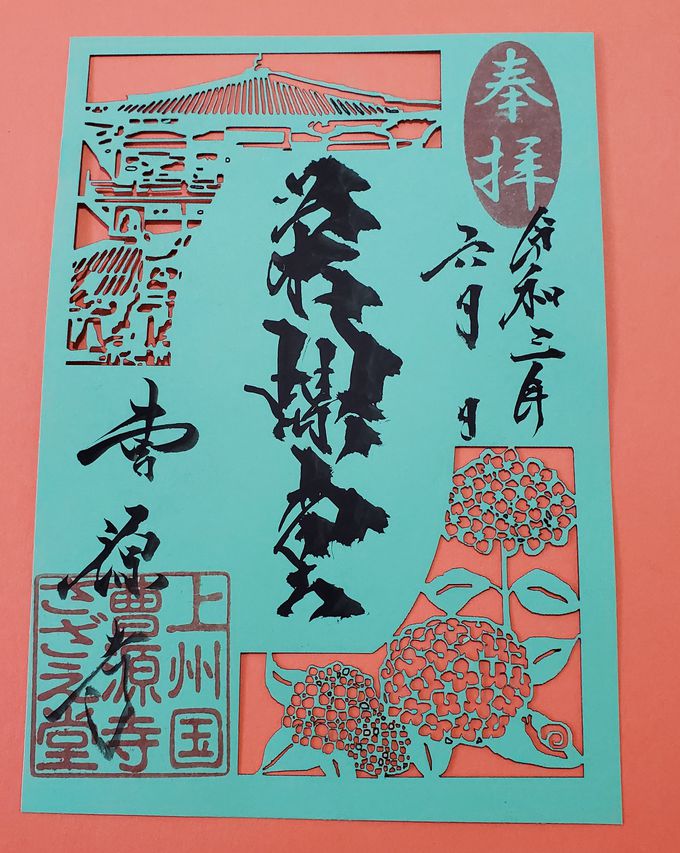 奉拝
令和三年
六月 日
曹源寺
上州国
曹源寺
さざえ堂